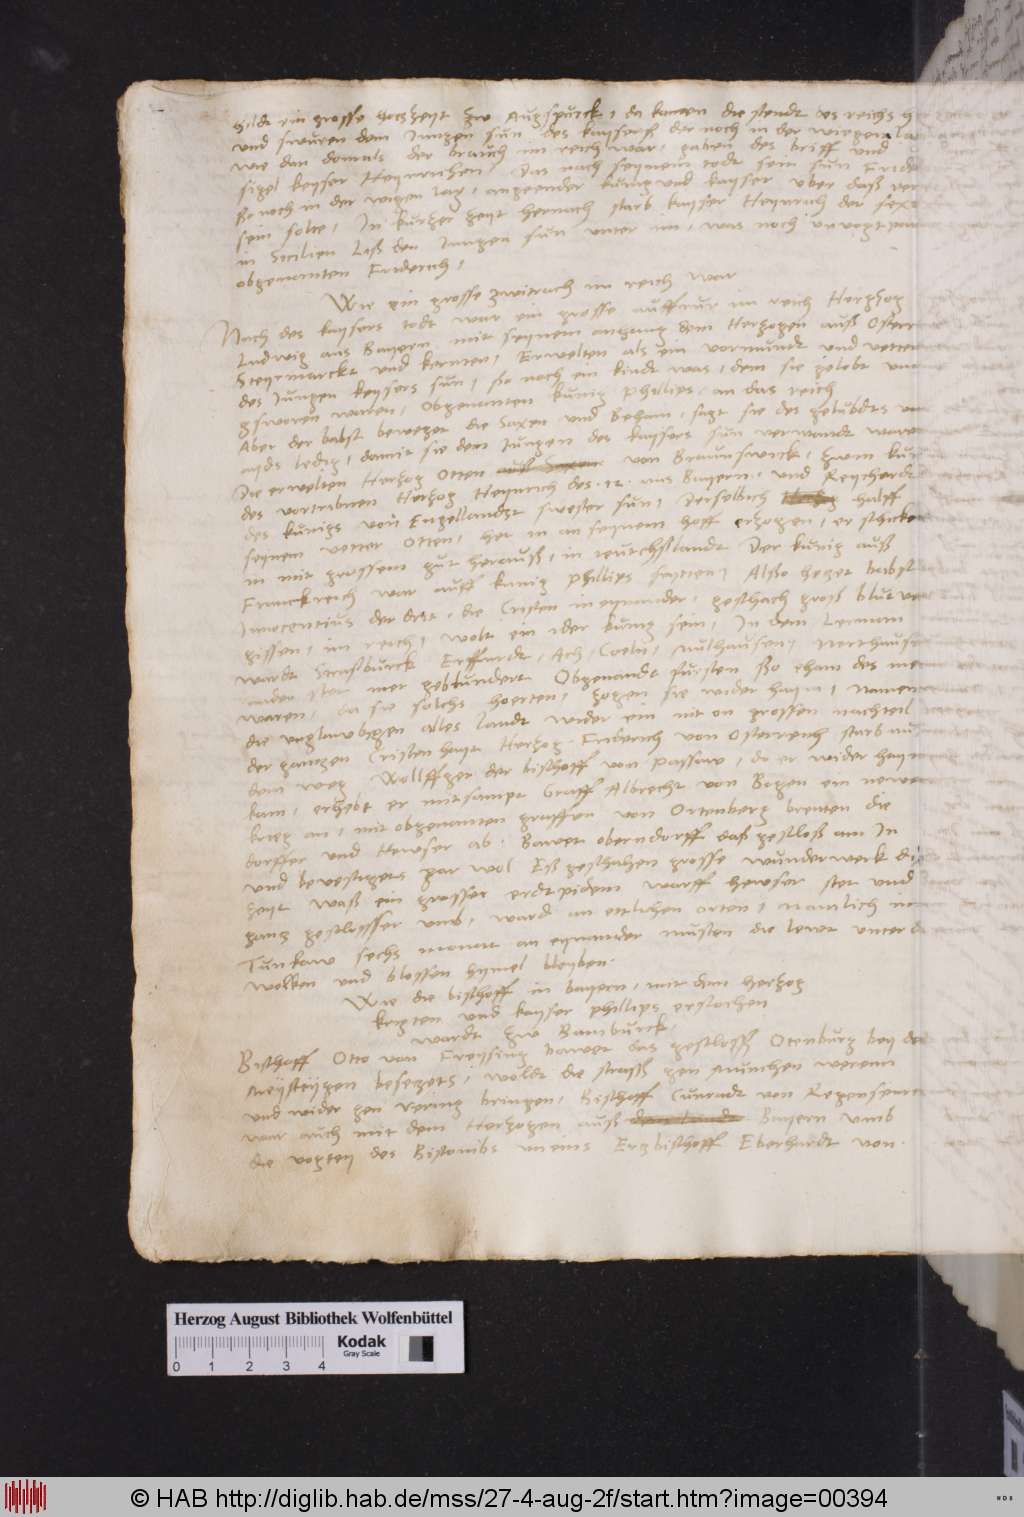 hildt ein grosse hochzeyt zw Augspurck, da kamen die stendt des reichs
und swuren dem Jungen sun des kaysers der noch in der wiegen lag
wie dan domals der brauch im reich war, gaben des briff und
sigel keyser Heynrichen, Das nach seynem todt sein sun Frider
so noch in der wigen lag, angeender künig und kayser uber daß
sein solte, In kurtzer zeyt hernach starb kayser Heynrich der sext
in Sicilien Ließ den Jungen sun unter im, was noch
obgenanten Friderich,
Wie ein grosse zwitrach im reich war
Nach des kaysers todt war ein grosse auffrur im reich Hertzog
Ludwig aus Bayern mit seynem anhang dem Hertzogen auß Oster
Steyrmarckt und kernten, Erwelten als ein vormundt und vetter
des Jungen keysers sun, so noch ein kindt was, dem sie gelobt und
gsworen waren, Obgenanten kunig Phillips an das reich
Aber der babst beweget die Saxen und Beham, sagt sie des gelubdts und
ayds ledig, damit sie dem Jungen des kaysers sun verwandt waren
Die erwelten Hertzog Otten von Braunswick, zwm
des vortribnen Hertzog Heynrich des .12. aus Bayern, und Reychardt
des kunigs von Engellandt swester sun, Derselbich halff
seynem vetter Otten, het in an seynem hoff erzogen, er schicket
in mit grossem gut herauß, in teutschslandt Der kunig auß
Franckreich war auff kunig Phillips seyten, Also hetzet babst
Innocentius der drit, die Cristen in eynander, geschach groß blut ver
gissen, im reich, wolt ein ider kunig sein, In dem Lerman
wardt Strasburck Erffurdt, Ach, Coeln, Mulhausen, Northausen
ander stet mer geblundert Obgenandt fursten so
waren, da sie solchs hoerten, zogen sie wider haym, namen
die unglawbigen alles landt wider ein nit on grossen nachteil
der gantzen Cristenhayt Hertzog Friderich von Osterreich starb auf
dem weg Wolffger der bischoff von Passaw, do er wider heym
kam, erhebt er mitsampt Graff Albrecht von Bogen ein newen
krieg an, mit obgenanten graffen von Ortenberg brenten die
dorffer und Hewser ab, Bawet oberndorff daß geschloß am In
und bevestigets gar wol Eß geschahen grosse wunderwerk die
zeyt waß ein grosser erdtpidem warff hewser stet und
gantz geschlosser umb, ward an etlichen orten, namlich
Tunkaw sechs monat an eynander musten die lewt unter
wolken und blossen hymel bleyben.
Wie die bischoff in bayern, mit dem hertzog
krigten und kayser phillips erstochen
wardt zw Bamburck,
Bischoff Otto von Freysing bawet das geschloß Otenburg bey
besetzets, woldt die strassz gen Munchen werenn
und wider gen vering bringen, Bischoff Cunradt von Regenspurck
war auch mit dem Hertzogen auß Bayern umb
die vogtey des Bistombs uneins Ertzbischoff Eberhardt von
Herzog August Bibliothek Wolfenbüttel
Kodak
Gray Scale
0 1 2 3 4
© HAB http://diglib.hab.de/mss/27-4-aug-2f/start.htm?image=00394